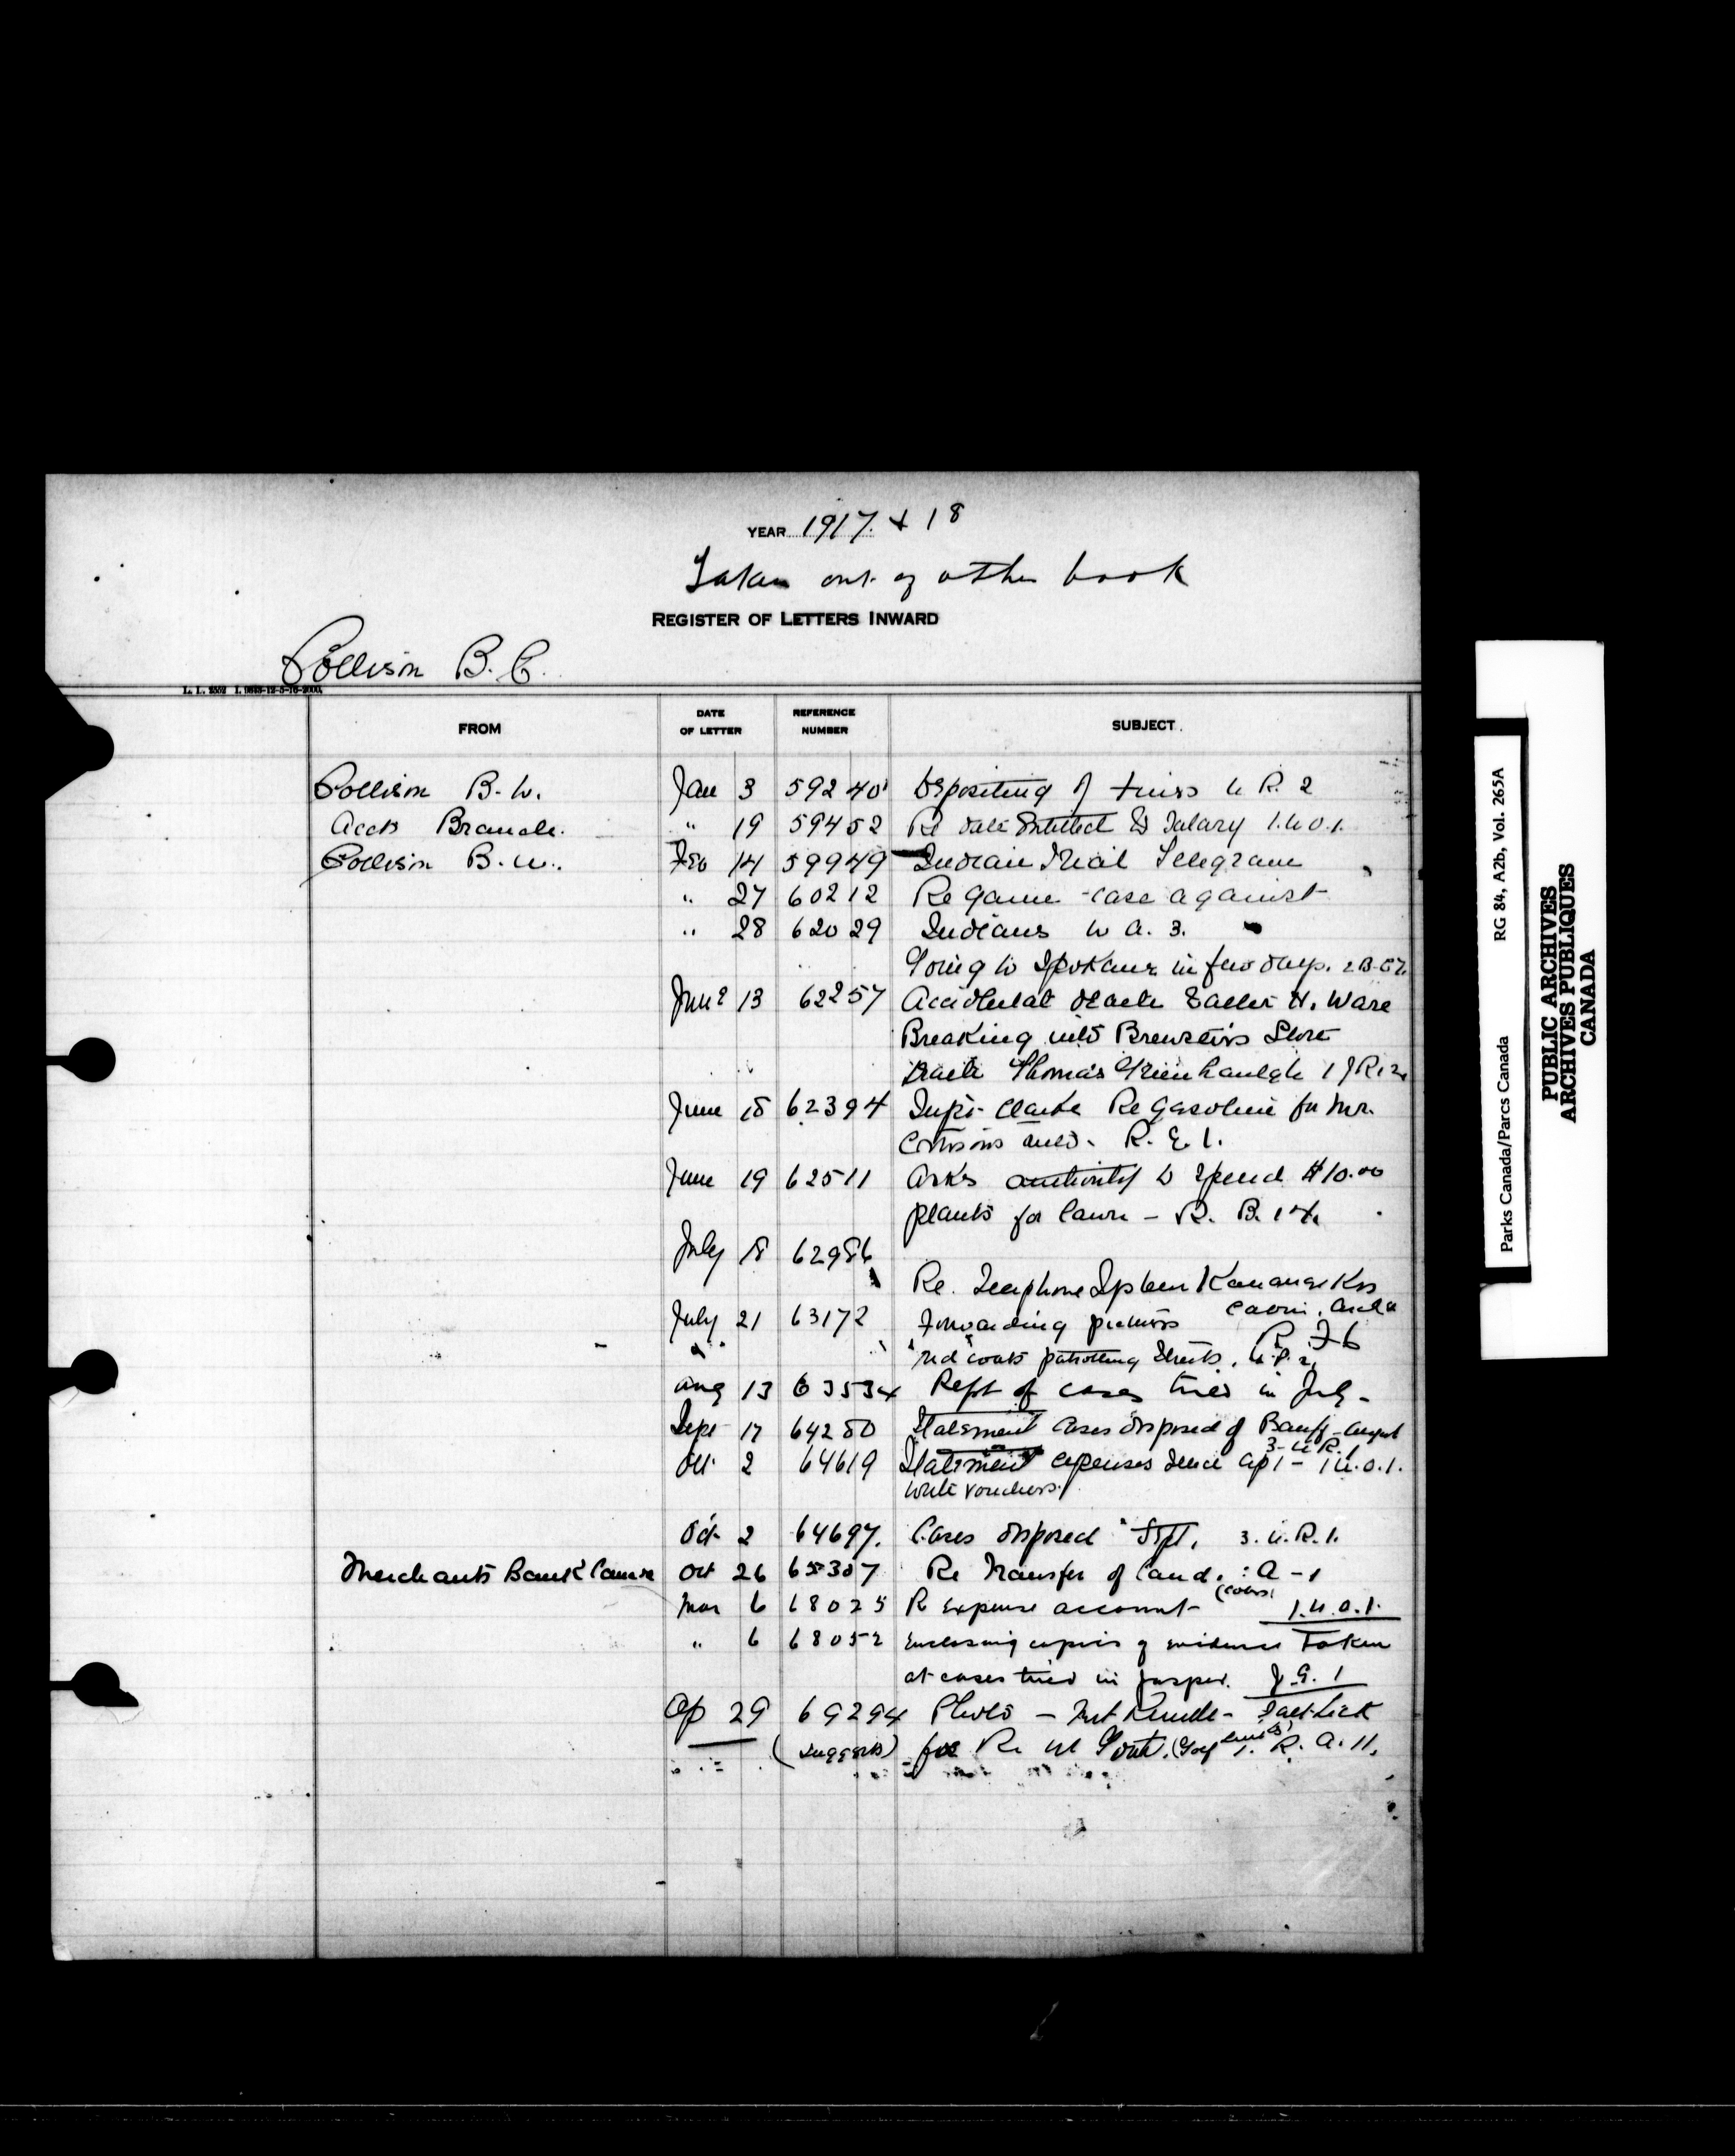 YEAR 1917 & 18
Taken out of other book
REGISTER OF LETTERS INWARD
Collison B. C.
L. L. 2552
FROM DATE OF LETTER REFERENCE NUMBER SUBJECT
Collison B. W. Jan 3 59240 Depositing of fines U R. 2
Accts Branch. " 19 59452 Re date entitled to Salary 1.U.O.1.
Collison B. W. Feb 14 59949 Indian Trial Telegram
" 27 60212 Re Game case against
" 28 62029 Indians W A. 3.
Going to Spokane in few days.
June 13 62257 Accidental death H. Ware
Breaking into Brewster's Store
Death Thomas Greenhaulgh
June 18 62394 Supt. Clarke Re Gasoline for Mr.
R. E. 1.
June 19 62511 Asks authority to spend $10.00
plants for lawn - R. B. 14
July 18 62986
Re. Telephone System Kananaskis
July 21 63172 Forwarding pictures
R F 6
"red" coats patrolling Streets. U.P. 2,
Aug 13 63534 Rept of cases tried in July -
Sept 17 64280 Statement cases disposed of Banff - August
3-U.R.1
Oct 2 64619 Statement expenses since Ap 1 - 1 U.O.1.
with vouchers.
Oct 2 64697. Cases disposed Sept. 3. U.R.1.
Merchants Bank Canada Oct 26 65307 Re Transfer of Land. : A - 1
Mar 6 68025 Re expense account 1.U.O.1.
" 6 68052 Enclosing copies of evidence Taken
at cases tried in Jasper. J. G. 1
Ap 29 69294 Photo
(suggests) for R. A. 11.
Parks Canada/Parcs Canada RG 84, A2b, Vol. 265A
PUBLIC ARCHIVES
ARCHIVES PUBLIQUES
CANADA